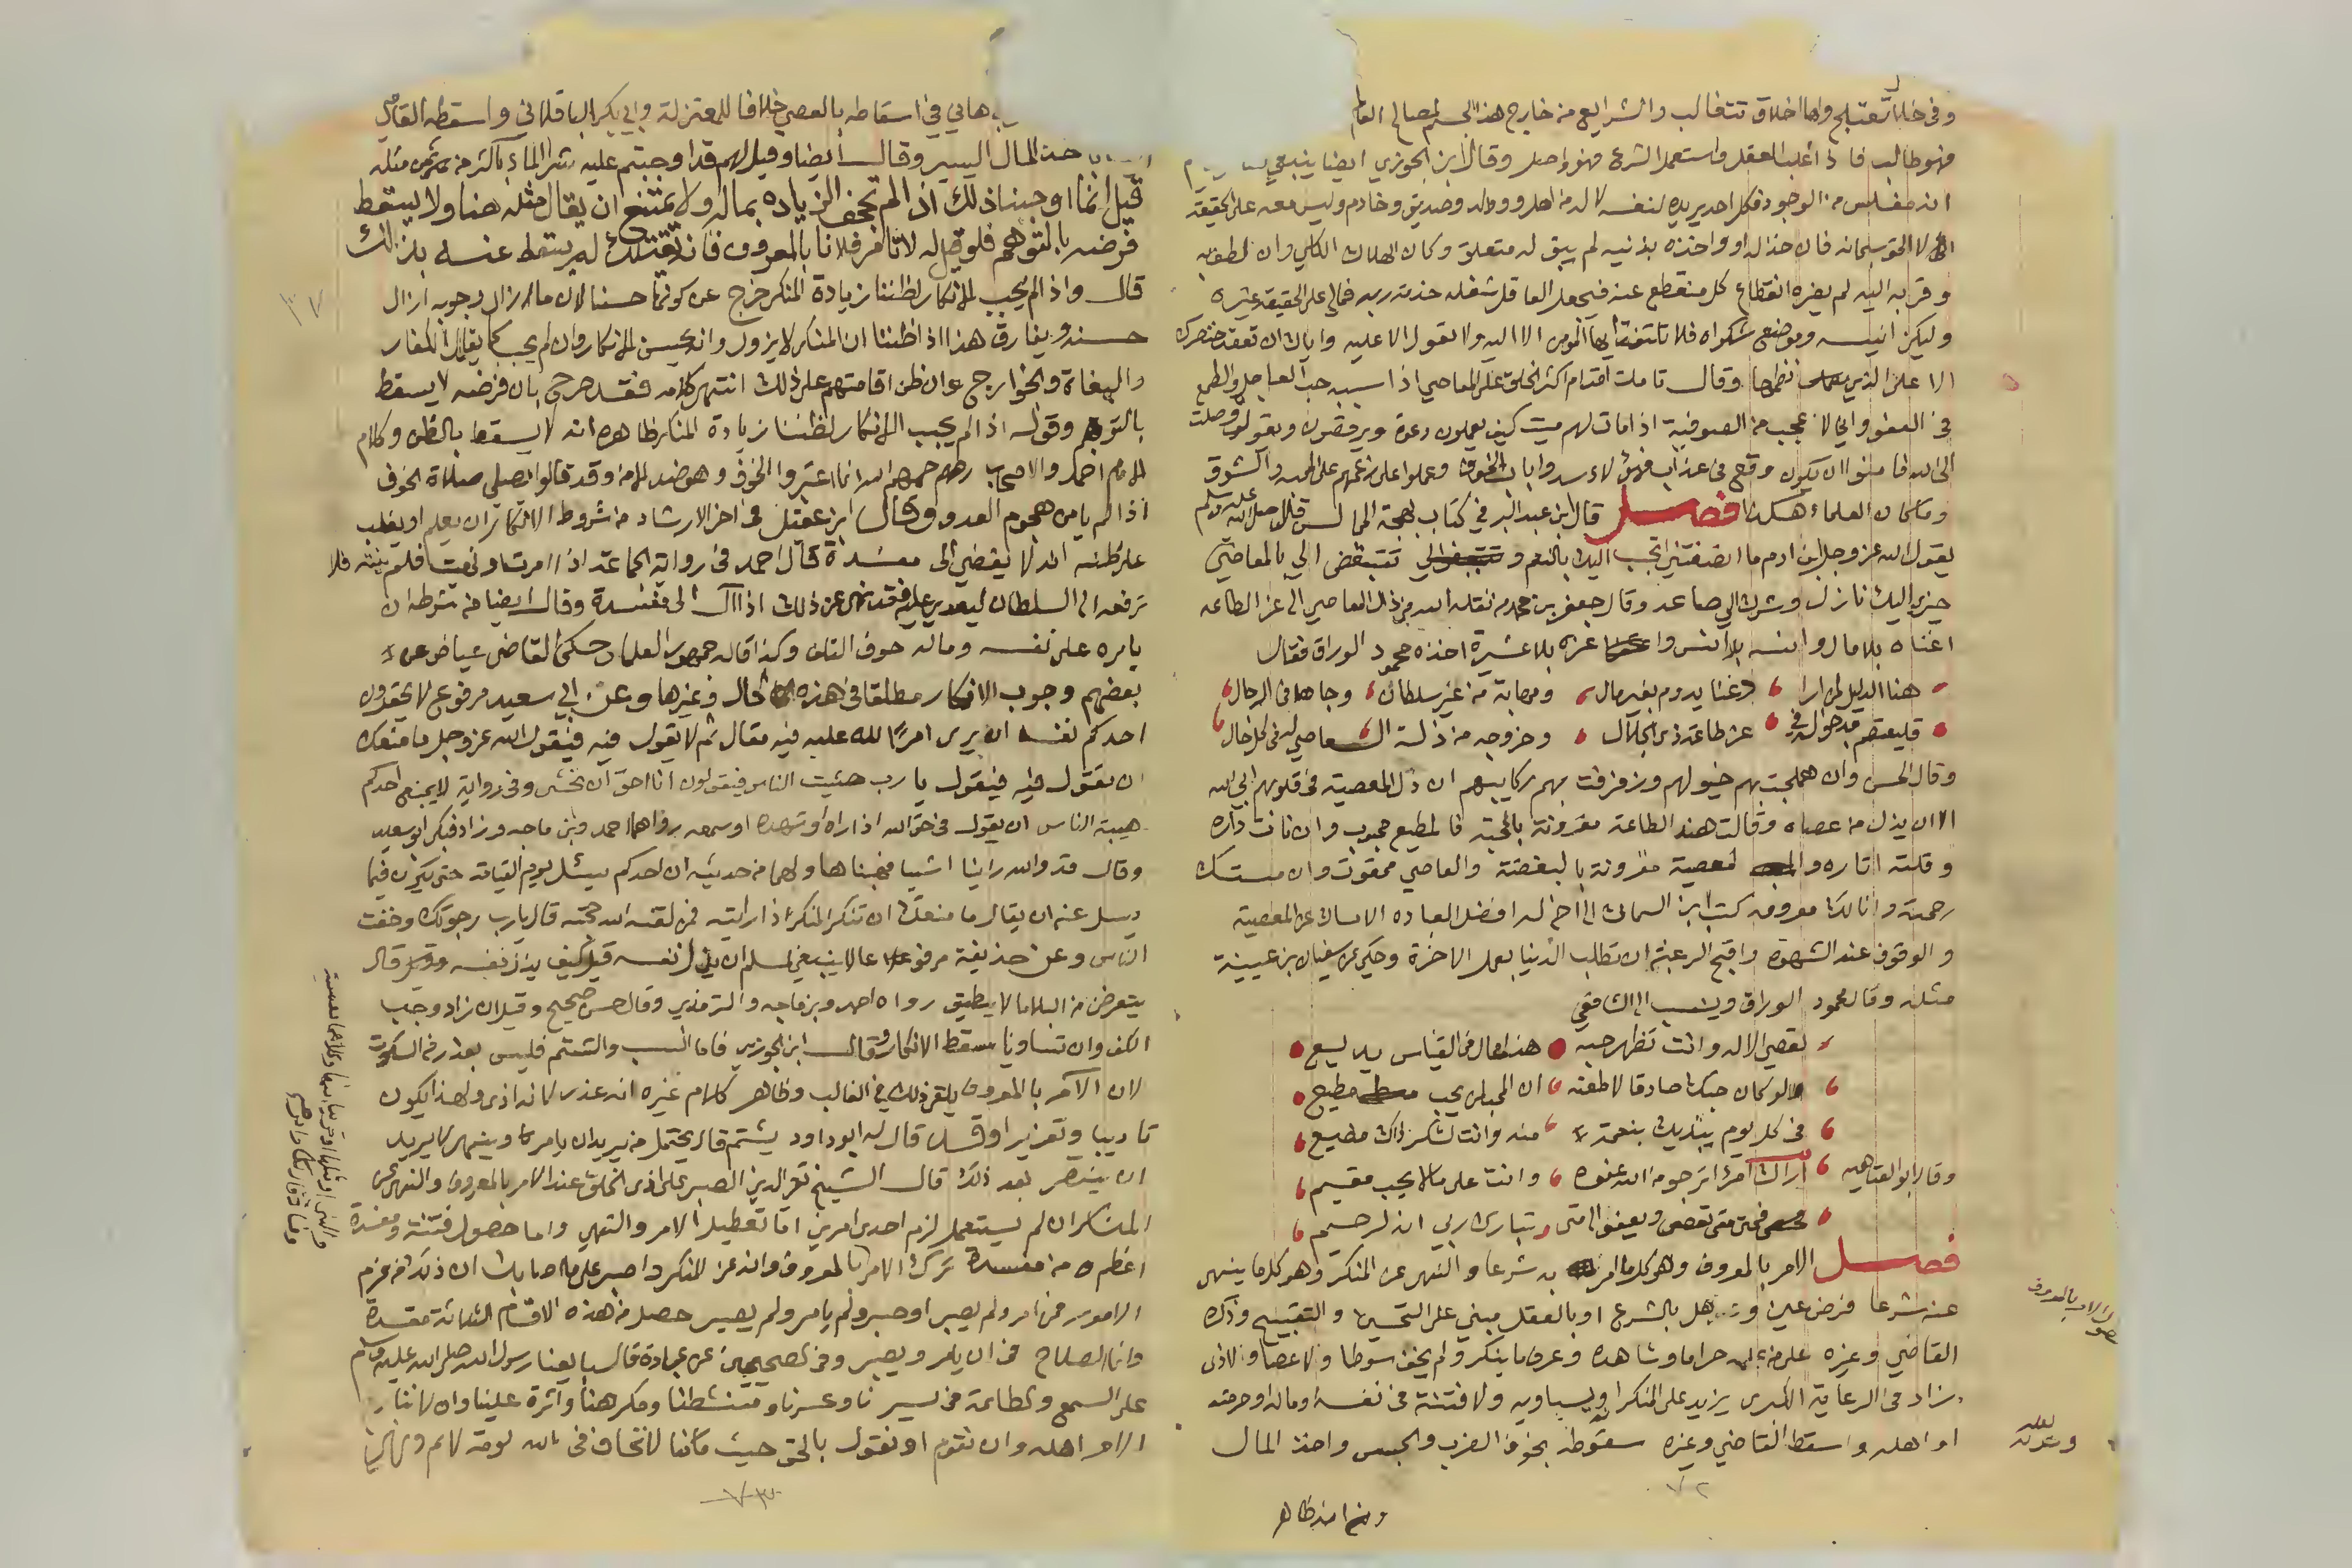 وفي خلال تعتلج واما اخلاق تتغالب والشرايع من خارج هذا الجسم لمصالح العالم
فهو طالب فاذا غلب العقل واستعمل الشرع فهو واصل وقال ابن الجوزي ايضا ينبغي
انه مفلس من الوجود فكل احد يريده لنفسه لا له من اهل وولد وصديق وخادم وليس معه على الحقيقة
الا الحق سبحانه فان خذله او واخذه بذنبه لم يبق له متعلق وكان الهلاك الكلي وان لطف به
وقربه اليه لم يضره انقطاع كل منقطع عنه فيجعل العاقل شغله خدمة ربه فمالي على الحقيقة غيره
وليكن انيسه وموضع شكواه فلا تلتفت ايها المومن الا اليه ولا تعول الا عليه واياك ان تعقد خنصرك
الا على الذي نظمها وقال تاملت اقدام اكثر الخلق على المعاصي اذا سببه حب العاجل والطمع
في العفو واني لاعجب من الصوفية اذا مات لهم ميت كيف يعملون دعوة ويرقصون ويقولون وصلت
الى الله فامنوا ان يكون وقع في عذاب فهؤلاء سدوا باب الخوف وعملوا على زعمهم على المحبه والشوق
وما كان العلماء هكذا فصل قال ابن عبد البر في كتاب بهجة المجالس قال صلى الله عليه وسلم
يقول الله عز وجل ابن ادم ما انصفتني اتحبب اليك بالنعم و تتبغض الي بالمعاصي
خيري اليك نازل وشرك الي صاعد وقال جعفر بن محمد من نقله الله من ذل المعاصي الى عز الطاعه
اغناه بلا مال وانسه بلا انس واعزه بلا عشيرة اخذه محمود الوراق فقال
هذا الدليل لمن ارا د غنا يدوم بغير مال ومهابة من غير سلطان وجاها في الرجال
فليعتصم بدخوله في عز طاعة ذي الجلال وخروجه من ذلة المعاصي له في كل حال
وقال الحسن وان هملجت بهم خيولهم ورفرفت بهم ركايبهم ان ذل المعصية في قلوبهم ابى الله
الا ان يذل من عصاه وقالت هند الطاعة مقرونة بالمحبة فالمطيع محبوب وان نات داره
وقلت اثاره والمعصية مقرونة بالبغضة والعاصي ممقوت وان مستك
رحمته وانالك معروفه كتب ابن السماك الى اخ له افضل العباده الامساك عن المعصية
والوقوف عند الشهوة واقبح الرغبة ان تطلب الدنيا بعمل الاخرة وحكي عن سفيان بن عيينة
مثله وقال محمود الوراق وينسب الى الشافعي
تعصي الاله وانت تظهر حبه هذا محال في القياس بديع
لو كان حبك صادقا لاطعته ان المحب لمن يحب مطيع
في كل يوم يبتديك بنعمة منه وانت لشكر ذاك مضيع
وقال ابو العتاهيه اراك امرأ ترجو من الله عفوه وانت على ما لا يحب مقيم
فحتى متى تعصي ويعفو الى متى تبارك ربي انه لرحيم
فصل الامر بالمعروف وهو كل ما امر به شرعا والنهي عن المنكر وهو كل ما ينهى
عنه شرعا فرض عين وهل بالشرع او بالعقل مبني على التحسين والتقبيح وذكره
القاضي وغيره على من علمه حراما وشاهده وعرف ما ينكر ولم يخف سوطا ولا عصا ولا اذى
زاد في الرعاية الكبرى يزيد على المنكر او يساويه ولا فتنة في نفسه او ماله او حرمته
او اهله واسقط القاضي وغيره سقوطه بخوف الضرب والحبس واخذ المال
لعله
الامر بالمعروف
٧٢
وانه ظاهر
هاني في اسقاطه بالعصي خلافا للمعتزلة وابي بكر الباقلاني واسقطه القاضي
اخذ المال اليسير وقال ايضا وقيل لهم قد اوجبتم عليه شرا الماء باكثر من ثمن مثله
قيل انما اوجبنا ذلك اذا لم تجحف الزياده بماله ولا يمتنع ان يقال مثله هنا ولا يسقط
فرضه بالتوهم فلو قيل له لا تامر فلانا بالمعروف فانه يقتلك لم يسقط عنه بذلك
قال واذا لم يجب الانكار لظننا زيادة المنكر خرج عن كونه حسنا لان ما ازال وجوبه ازال
حسنه ويفارق هذا اذا ظننا ان المنكر لا يزول وانه يحسن الانكار وان لم يجب كما يقاتل الكفار
والبغاة والخوارج وان ظن اقامتهم على ذلك انتهى كلامه فقد صرح بان فرضه لا يسقط
بالتوهم وقوله اذا لم يجب الانكار لظننا زيادة المنكر ظاهره انه لا يسقط بالظن وكلام
الامام احمد والاصحاب رحمهم الله انما اعتبروا الخوف وهو ضد الامن وقد قالوا يصلي صلاة الخوف
اذا لم يامن هجوم العدو وقال ابن عقيل في اخر الارشاد من شروط الانكار ان يعلم او يغلب
على ظنه انه لا يفضي الى مفسدة قال احمد في رواية الجماعة اذا امرت او نهيت فلم ينته فلا
ترفعه الى السلطان ليعدي عليه فقد نهى عن ذلك اذا آل الى مفسدة وقال ايضا من شرطه ان
يامن على نفسه وماله خوف التلف وكذا قاله جمهور العلما وحكى القاضي عياض عن
بعضهم وجوب الانكار مطلقا في هذه الحال وغيرها وعن ابي سعيد مرفوعا لا يحقرن
احدكم نفسه ان يرى امرا لله عليه فيه مقال ثم لا يقول فيه فيقول الله عز وجل ما منعك
ان تقول فيه فيقول يا رب خشيت الناس فيقول انا احق ان تخشى وفي رواية لا يمنعن احدكم
هيبة الناس ان يقول في حق الله اذا راه او شهده او سمعه رواهما احمد وابن ماجه وزاد فبكى ابو سعيد
وقال قد والله راينا اشيا فهبنا ولهما من حديثه ان احدكم ليسئل يوم القيامة حتى يكون فيما
يسل عنه ان يقال ما منعك ان تنكر المنكر اذا رايته فمن لقنه الله حجته قال يا رب رجوتك وخفت
الناس وعن حذيفة مرفوعا لا ينبغي لمسلم ان يذل نفسه قيل كيف يذل نفسه قال
يتعرض من البلاء ما لا يطيق رواه احمد وابن ماجه والترمذي وقال حسن صحيح وقيل ان زاد وجب
الكف وان تساويا سقط الانكار وقال ابن الجوزي فاما السب والشتم فليس بعذر في السكوت
لان الآمر بالمعروف يلقى ذلك في الغالب وظاهر كلام غيره انه عذر لانه اذى ولهذا يكون
تاديبا وتعزيرا وقد قال له ابو داود يشتم قال يحتمل من يريد ان يامر وينهى لا يريد
ان ينتصر بعد ذلك قال الشيخ تقي الدين الصبر على اذى الخلق عند الامر بالمعروف والنهي عن
المنكر ان لم يستعمل لزم احد امرين اما تعطيل الامر والنهي واما حصول فتنة ومفسدة
اعظم من مفسدة ترك الامر بالمعروف وانه عن المنكر واصبر على ما اصابك ان ذلك من عزم
الامور فمن امر ولم يصبر او صبر ولم يامر او لم يامر ولم يصبر حصل من هذه الاقسام الثلاثة مفسدة
وانما الصلاح في ان يامر ويصبر وفي الصحيحين عن عبادة قال بايعنا رسول الله صلى الله عليه وسلم
على السمع والطاعة في يسرنا وعسرنا ومنشطنا ومكرهنا واثرة علينا وان لا ننازع
الامر اهله وان نقوم او نقول بالحق حيث ما كنا لا نخاف في الله لومة لائم ونهى
٧٣